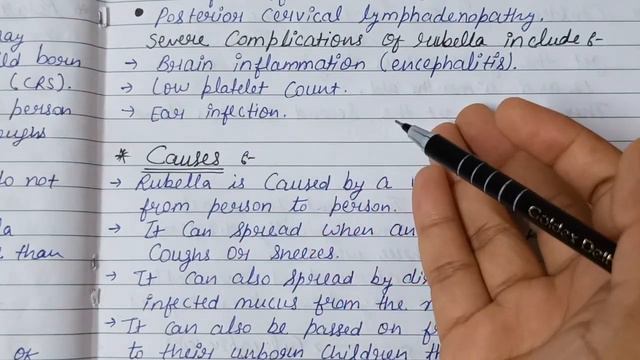 ray
ild born
(CRS).
person
oughs
do not
la
e than
of
• Posterior Cervical lymphadenopathy.
Severe Complications of rubella include :-
→ Brain inflammation (encephalitis).
→ Low platelet Count.
→ Ear infection.
* Causes :-
→ Rubella is Caused by a
from person to person.
→ It Can spread when an
Coughs or sneezes.
→ It can also spread by di
infected mucus from the
→ It can also be passed on
to their unborn children